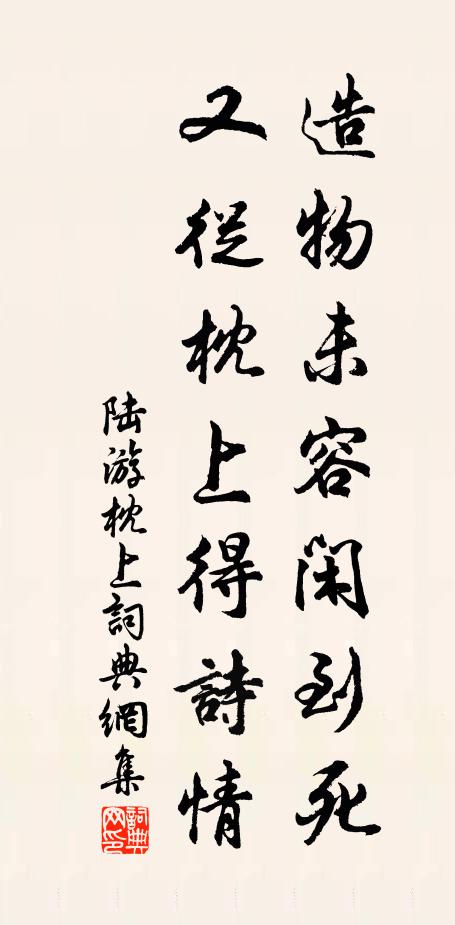 造物未容閑到死
又從枕上得詩情
陆游枕上詞典網集
詞典
网印